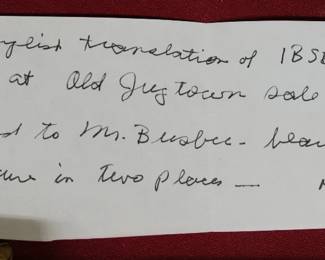 nglish translation of IBSE
at Old Jugtown sale
d to Mr. Busbee - bea
ure in two places —